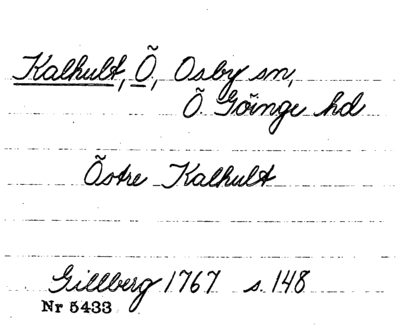 Kalhult, Ö, Osby sn,
Ö. Göinge hd
Östre Kalhult
Gillberg 1767 s. 148
Nr 5433